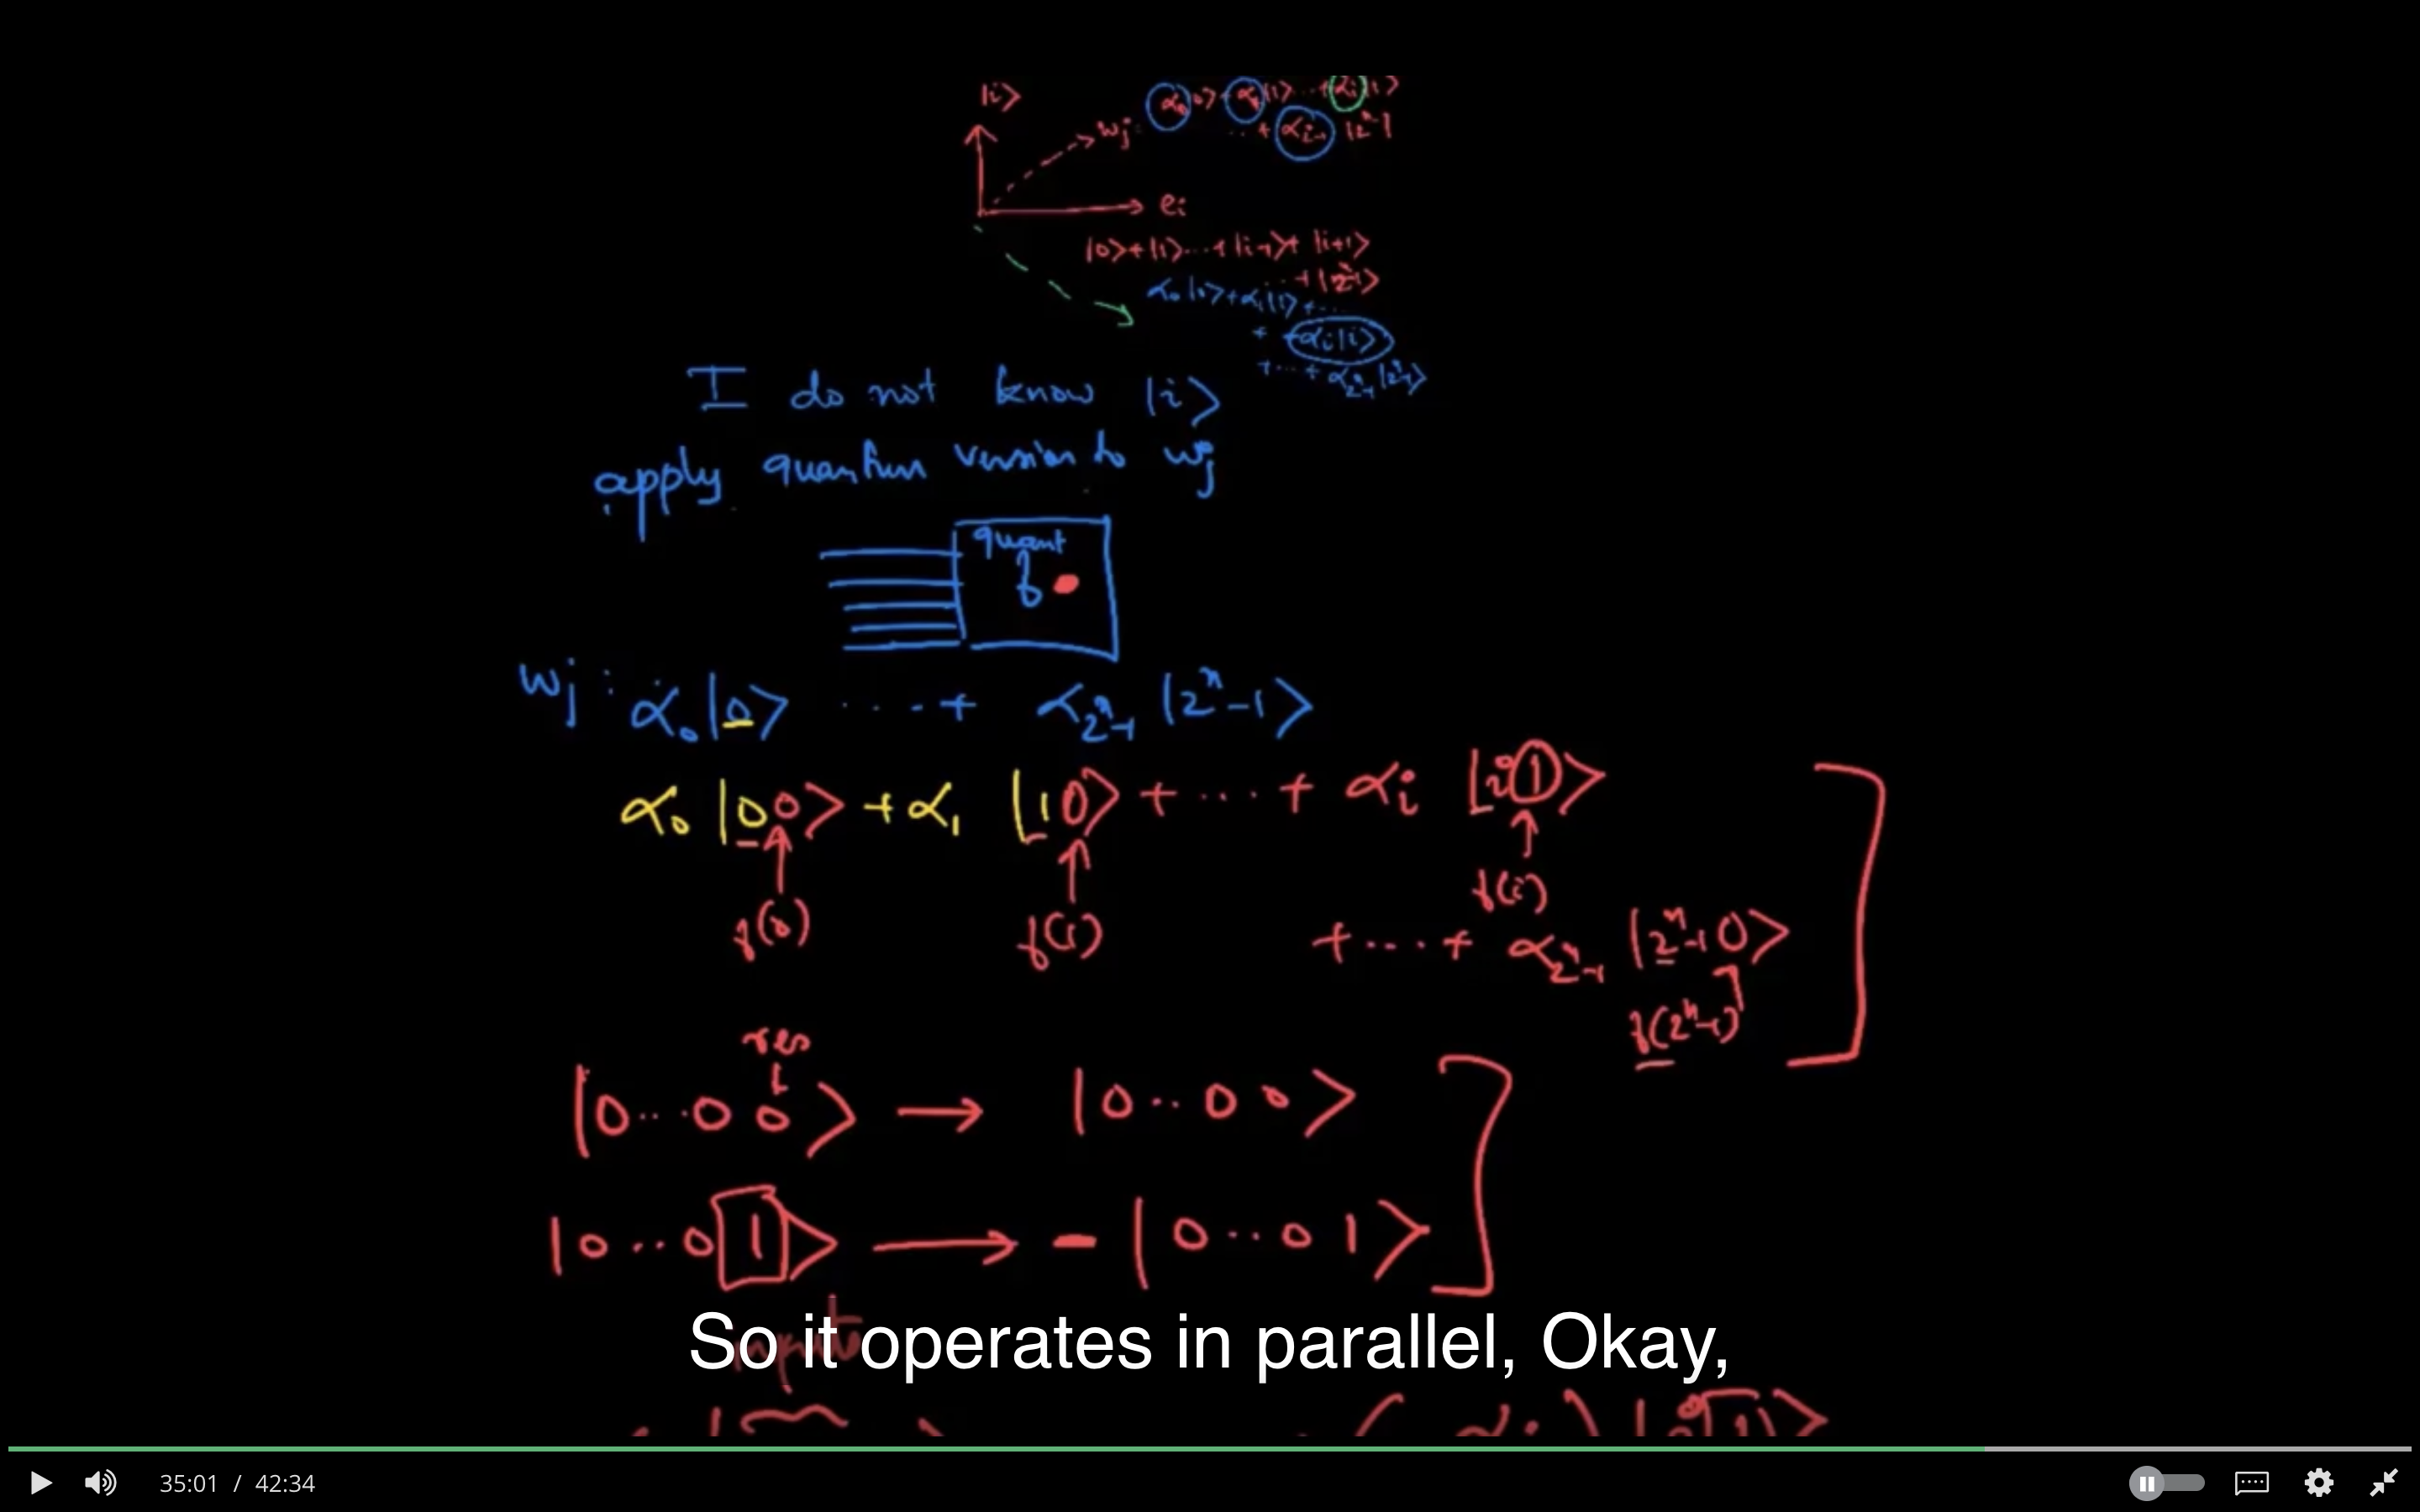 |i>
wj: α0|0> + α1|1> ... + αi|i>
... + αi-1 |2^n-1
ei
|0>+|1>...+|i-1>+ |i+1>
...+|2^n-1>
α0|0>+α1|1>+...
+ -αi|i>
+...+ α2^n-1|2^n-1>
I do not know |i>
apply quantum version to wj
quant
f
wj: α0|0> ...+ α2^n-1 |2^n-1>
α0 |00> + α1 |10> + ... + αi |i1>
f(0) f(1) f(i)
+...+ α2^n-1 |2^n-1 0>
f(2^n-1)
res
|0...0 0> → |0..0 0>
|0...0 1> → -|0..0 1>
So it operates in parallel, Okay,
35:01 / 42:34